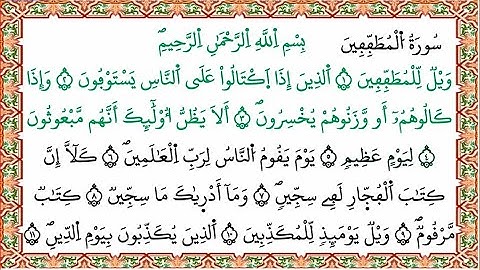 سُورَةُ الْمُطَفِّفِينَ بِسْمِ اللَّهِ الرَّحْمَٰنِ الرَّحِيمِ
وَيْلٌ لِّلْمُطَفِّفِينَ ١ الَّذِينَ إِذَا اكْتَالُوا عَلَى النَّاسِ يَسْتَوْفُونَ ٢ وَإِذَا
كَالُوهُمْ أَو وَّزَنُوهُمْ يُخْسِرُونَ ٣ أَلَا يَظُنُّ أُولَٰئِكَ أَنَّهُم مَّبْعُوثُونَ
٤ لِيَوْمٍ عَظِيمٍ ٥ يَوْمَ يَقُومُ النَّاسُ لِرَبِّ الْعَالَمِينَ ٦ كَلَّا إِنَّ
كِتَابَ الْفُجَّارِ لَفِي سِجِّينٍ ٧ وَمَا أَدْرَاكَ مَا سِجِّينٌ ٨ كِتَابٌ
مَّرْقُومٌ ٩ وَيْلٌ يَوْمَئِذٍ لِّلْمُكَذِّبِينَ ١٠ الَّذِينَ يُكَذِّبُونَ بِيَوْمِ الدِّينِ ١١